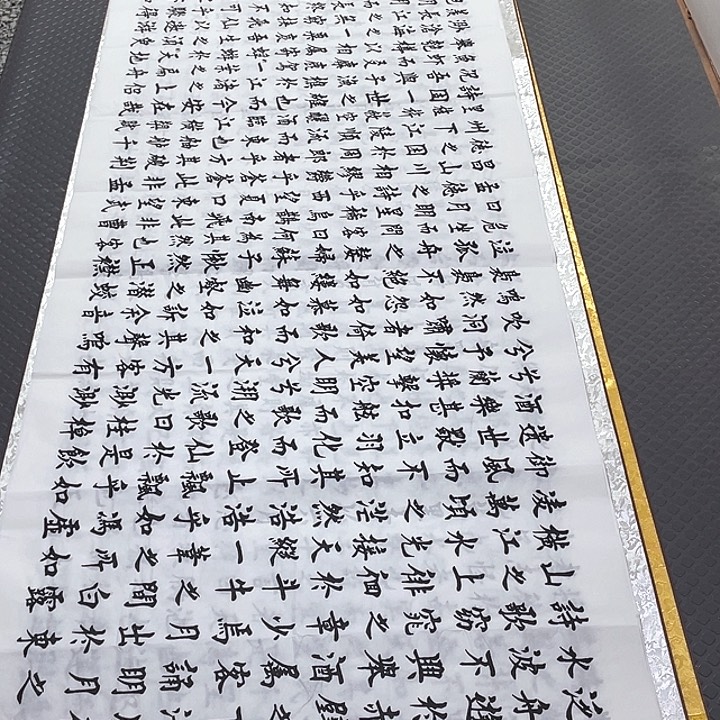 水波不興舉酒屬客誦明月
詩歌窈窕之章少焉月出於東
山之上徘徊於斗牛之間白露
橫江水光接天縱一葦之所如
凌萬頃之茫然浩浩乎如馮虛
御風而不知其所止飄飄乎如
遺世獨立羽化而登仙於是飲
酒樂甚扣舷而歌之歌曰桂棹
兮蘭槳擊空明兮泝流光渺渺
兮予懷望美人兮天一方客有
吹洞簫者倚歌而和之其聲嗚
嗚然如怨如慕如泣如訴余音
裊裊不絕如縷舞幽壑之潛蛟
泣孤舟之嫠婦蘇子愀然正襟
危坐而問客曰何為其然也客
曰月明星稀烏鵲南飛此非曹
孟德之詩乎西望夏口東望武
昌山川相繆鬱乎蒼蒼此非孟
德之困於周郎者乎方其破荊
州下江陵順流而東也舳艫千
里旌旗蔽空釃酒臨江橫槊賦
詩固一世之雄也而今安在哉
况吾與子漁樵於江渚之上侶
魚蝦而友麋鹿駕一葉之扁舟
舉匏樽以相屬寄蜉蝣於天地
渺滄海之一粟哀吾生之須臾